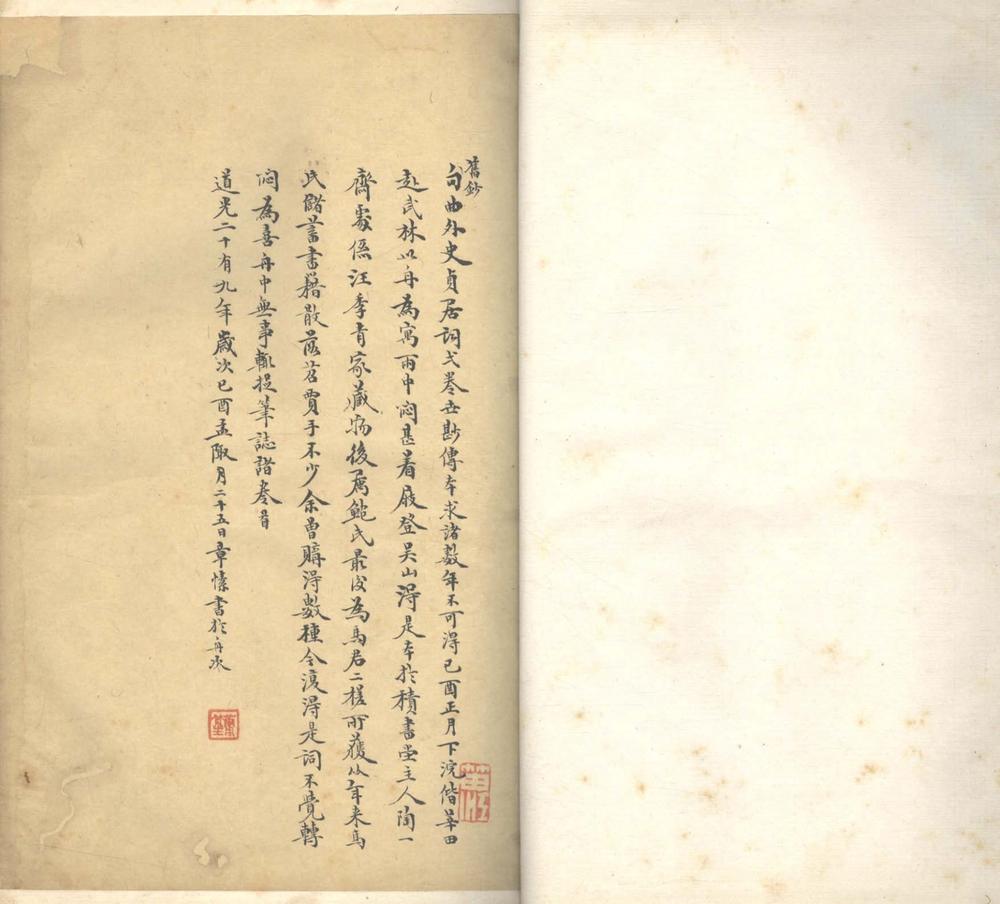 舊鈔
句曲外史貞居詞弍卷世尠傳本求諸數年不可得己酉正月下浣偕華田
赴武林以舟為寓雨中悶甚着屐登吴山得是本於積書堂主人陶一
齋處係汪季青家藏物後属鮑氏最後為馬君二槎所獲從年来馬
氏儲蓄書籍散落苕賈手不少余曽購得數種今復得是詞不覺轉
悶為喜舟中無事輒捉筆誌諸卷首
道光二十有九年歲次己酉孟陬月二十五日章愫書於舟次